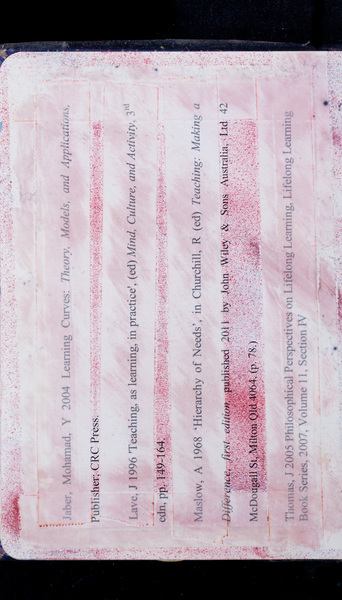 Jaber, Mohamad, Y 2004 Learning Curves: Theory, Models, and Applications,
Publisher: CRC Press.
Lave, J 1996 'Teaching, as learning, in practice', (ed) Mind, Culture, and Activity. 3rd
edn, pp. 149-164.
Maslow, A 1968 'Hierarchy of Needs', in Churchill, R (ed) Teaching: Making a
Difference, first edition, published 2011 by John Wiley & Sons Australia, Ltd 42
McDougall St, Milton Qld 4064, (p. 78.)
Thomas, J 2005 Philosophical Perspectives on Lifelong Learning, Lifelong Learning
Book Series, 2007, Volume 11, Section IV